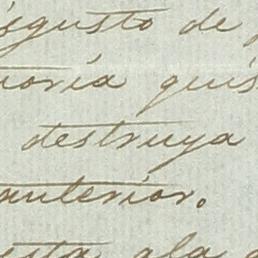 disgusto de
moría quis
destruya
anterior.
esta ala